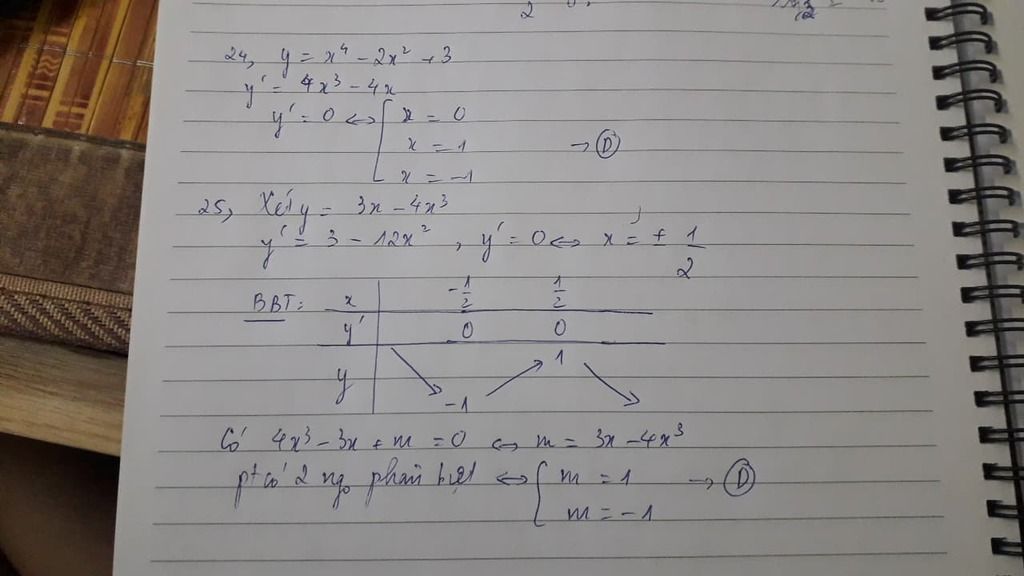 24, y = x⁴ - 2x² + 3
y' = 4x³ - 4x
y' = 0 ⇔ [ x = 0
x = 1 → Ⓓ
x = -1
25, Xét y = 3x - 4x³
y' = 3 - 12x² , y' = 0 ⇔ x = ± 1/2
BBT: x -1/2 1/2
y' 0 0
1
y
-1
Có 4x³ - 3x + m = 0 ⇔ m = 3x - 4x³
pt có 2 ngo phân biệt ⇔ [ m = 1 → Ⓓ
m = -1